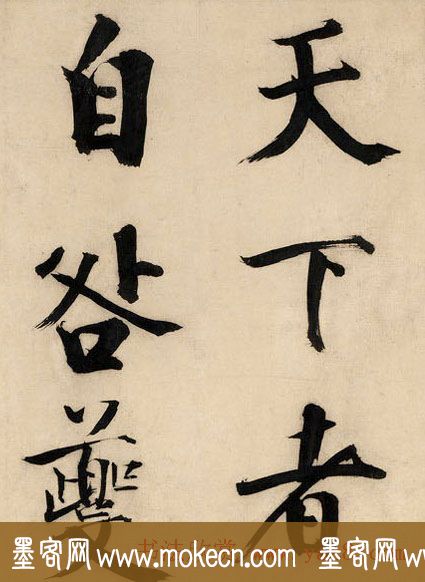 天下者
自咎夔
墨客网 www.mokecn.com 墨客网